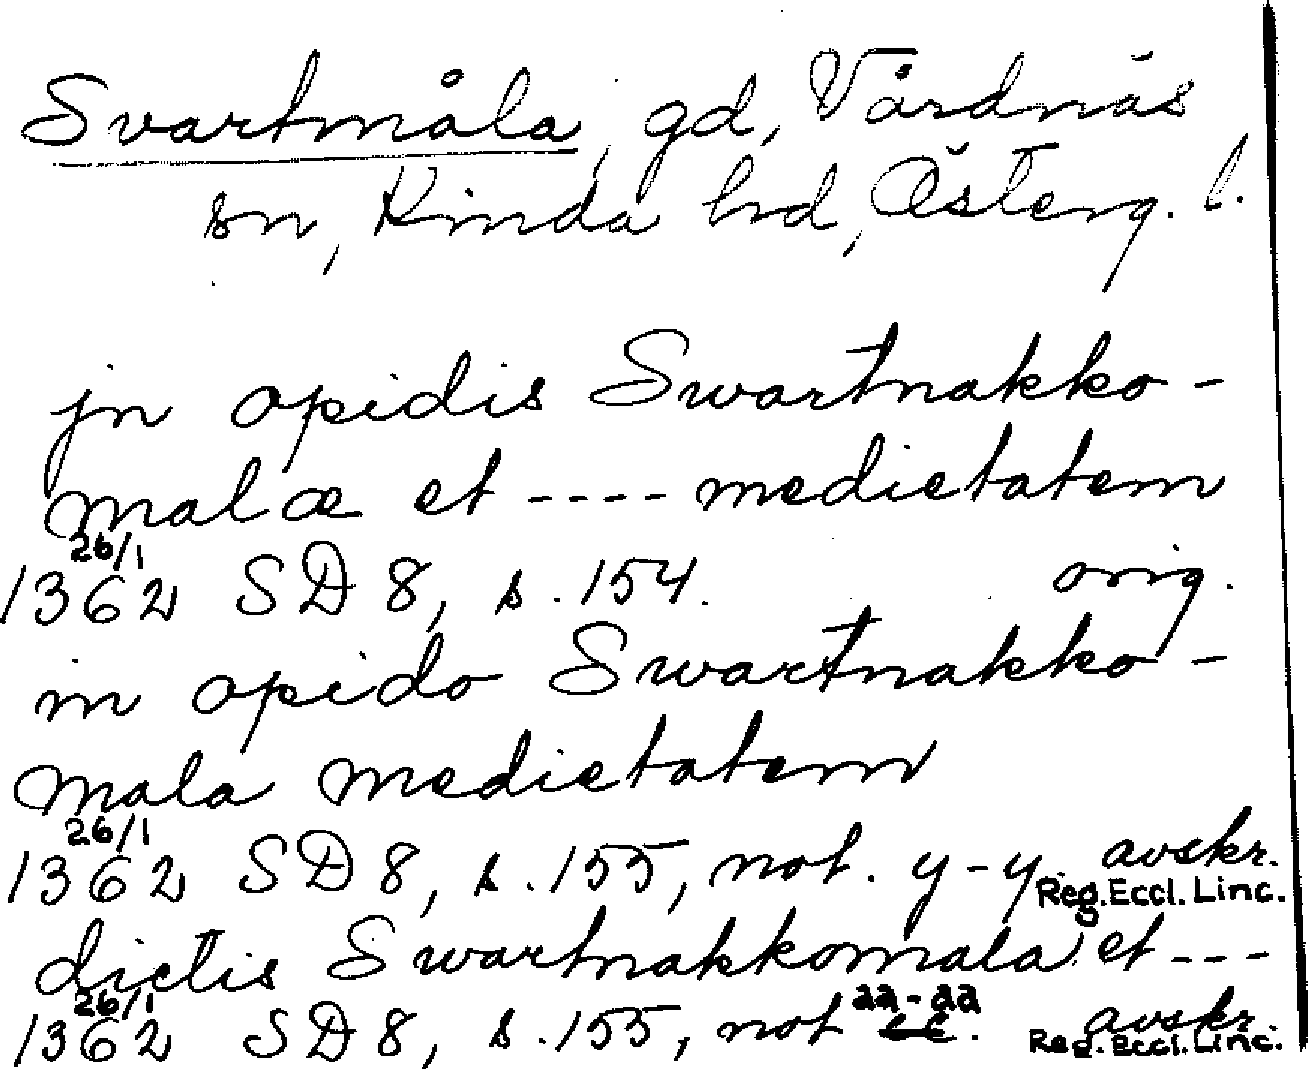 Svartmåla, gd, Vårdnäs
sn, Kinda hd, Österg. l.
jn opidis Swartnakko-
malæ et ---- medietatem
26/1
1362 SD 8, s. 154. orig.
in opido Swartnakko-
mala medietatem
26/1
1362 SD 8, s. 155, not. y-y. avskr.
Reg. Eccl. Linc.
dictis Swartnakkomala et ---
26/1
1362 SD 8, s. 155, not aa-aa. avskr.
Reg. Eccl. Linc.